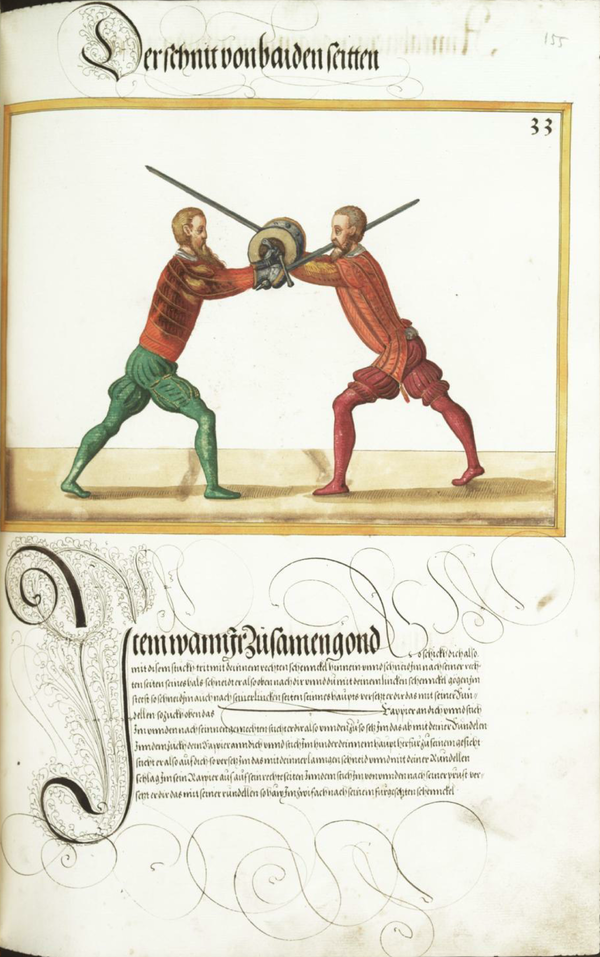 155
Der schnit von baiden seitten
33
Item wann Ir zusamen gond so schick dich also
mit disem stuckh trit mit deinem rechten schennckel hinnein vnnd schneid Im nach seiner rech-
ten seiten seines hals schneidt er also oben nach dir vnnd du mit deinem lincken schennckel gegen Im
steest so schneid Im auch nach seiner lincken seiten seines haupts versetzt er dir das mit seiner Run-
dellen so zuckh oben das Rappier an dich vnnd stich
Im vnnden nach seinem gerechten sticht er dir also vnnden zu so setz Im das ab mit deiner Rundelen
Inn dem zuckh dein Rappier an dich vnnd stich Im hinder deinem haupt herfür zu seinem gesicht
sticht er also auf dich so versetz Im das mit deiner lanngen schneid vnnd mit deiner Rundellen
schlag Im sein Rappier aus auf sein rechte seiten Inn dem stich Im von vnnden nach seiner prust ver-
setzt er dir das mit seiner rundellen so haw Im zwifach nach seinem fürgesetzten schennckel